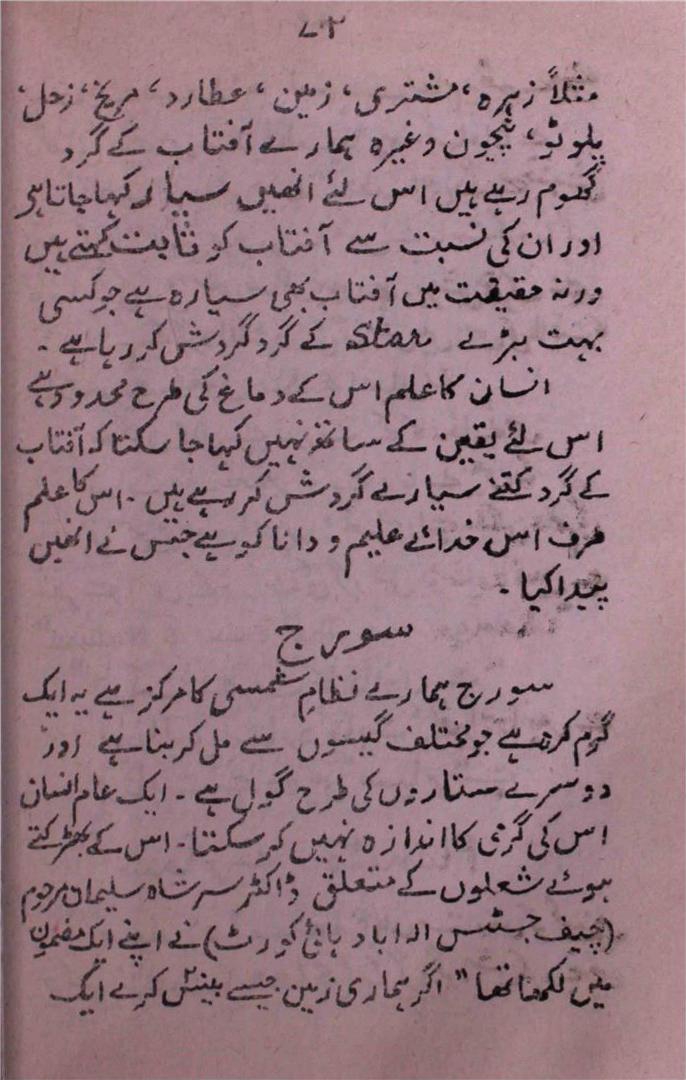 ۷۲
مثلاً زہرہ، مشتری، زمین، عطارد، مریخ، زحل،
پلوٹو، نیپچون وغیرہ ہمارے آفتاب کے گرد
گھوم رہے ہیں اس لئے انھیں سیارہ کہا جاتا ہی
اور ان کی نسبت سے آفتاب کو ثابت کہتے ہیں
ورنہ حقیقت میں آفتاب بھی سیارہ ہے جو کسی
بہت بڑے Star کے گرد گردش کر رہا ہے۔
انسان کا علم اس کے دماغ کی طرح محدود ہے
اس لئے یقین کے ساتھ نہیں کہا جا سکتا کہ آفتاب
کے گرد کتنے سیارے گردش کر رہے ہیں۔ اس کا علم
صرف اس خدائے علیم و دانا کو ہے جس نے انھیں
پیدا کیا۔
سورج
سورج ہمارے نظامِ شمسی کا مرکز ہے یہ ایک
گرم کرہ ہے جو مختلف گیسوں سے مل کر بنا ہے اور
دوسرے ستاروں کی طرح گول ہے۔ ایک عام انسان
اس کی گرمی کا اندازہ نہیں کر سکتا۔ اس کے بھڑکتے
ہوئے شعلوں کے متعلق ڈاکٹر سر شاہ سلیمان مرحوم
(چیف جسٹس الہ اباد ہائی کورٹ) نے اپنے ایک مضمون
میں لکھا تھا " اگر ہماری زمین جیسے کرے ایک